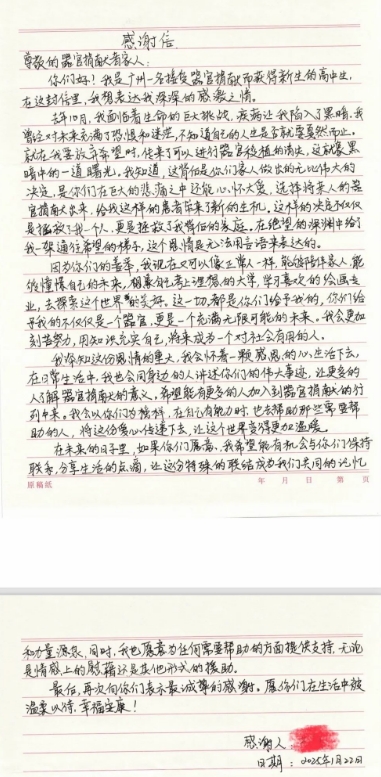 感谢信
尊敬的器官捐献者家人：
你们好！我是广州一名接受器官捐献而获得新生的高中生，
在这封信里，我想表达我深深的感激之情。
去年10月，我面临着生命的巨大挑战，疾病让我陷入了黑暗，我
曾经对未来充满了恐惧和迷茫，不知道自己的人生是否就要戛然而止。
就在我要放弃希望时，传来了可以进行器官移植的消息，这就像黑
暗中的一道曙光。我知道，这背后是你们家人做出的无比伟大的
决定，是你们在巨大的悲痛之中还能心怀大爱，选择将亲人的器
官捐献出来，给我这样的患者带来了新的生机。这样的决定不仅仅
是拯救了我一个人，更是拯救了我背后的家庭。在绝望的深渊中给了
我一架通往希望的梯子，这个恩情是无法用言语来表达的。
因为你们的善举，我现在又可以像正常人一样，能够陪伴家人，能
够憧憬自己的未来，朝着自己理想的大学，学习喜欢的绘画专
业，去探索这个世界的美好。这一切都是你们给予我的，你们给
予我的不仅仅是一个器官，更是一个充满无限可能的未来。我会更加
刻苦努力，用知识充实自己，将来成为一个对社会有用的人。
我深知这份恩情的重大，我会怀着一颗感恩的心生活下去，
在日常生活中，我也会向身边的人讲述你们的伟大事迹，让更多的
人了解器官捐献的意义，希望能有更多的人加入到器官捐献的行
列中来。我会以你们为榜样，在自己有能力时，也去帮助那些需要帮
助的人，将这份爱心传递下去，让这个世界变得更加温暖。
在未来的日子里，如果你们愿意，我希望能有机会与你们保持
联系，分享生活的点滴，让这份特殊的联结成为我们共同的记忆
原稿纸 年 月 日 第 页
和力量源泉，同时，我也愿意为任何需要帮助的方面提供支持，无论
是情感上的慰藉还是其他形式的援助。
最后，再次向你们表示最诚挚的感谢。愿你们在生活中被
温柔以待，幸福安康！
感谢人
日期：2025年1月22日